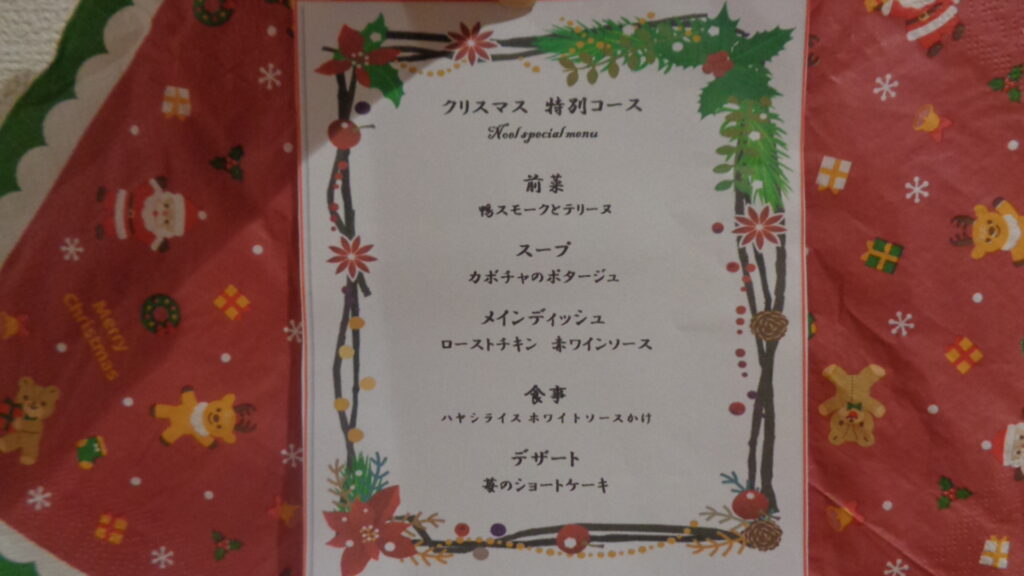 クリスマス 特別コース
Noel special menu
前菜
鴨スモークとテリーヌ
スープ
カボチャのポタージュ
メインディッシュ
ローストチキン 赤ワインソース
食事
ハヤシライス ホワイトソースかけ
デザート
苺のショートケーキ
Merry
Christmas